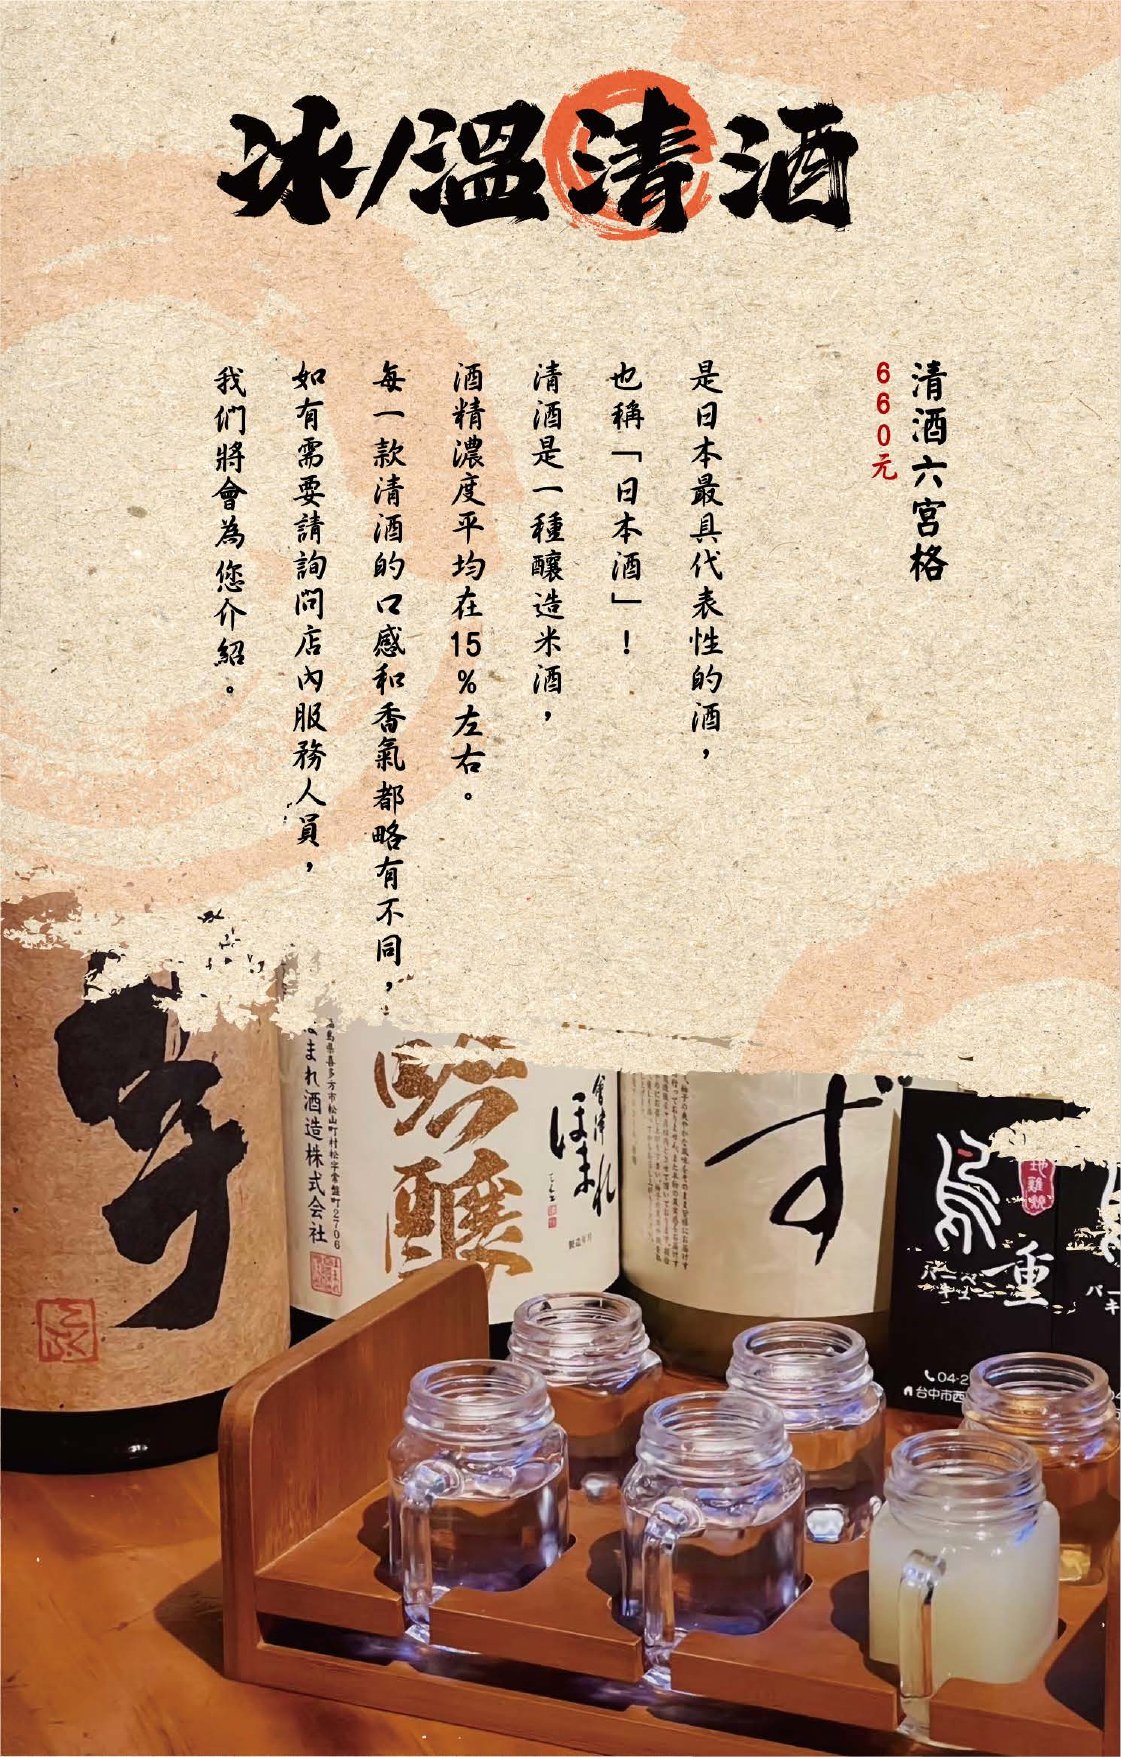 冰/溫清酒
清酒六宮格
660元
是日本最具代表性的酒，
也稱「日本酒」！
清酒是一種釀造米酒，
酒精濃度平均在15%左右。
每一款清酒的口感和香氣都略有不同，
如有需要請詢問店內服務人員，
我們將會為您介紹。
福島県喜多方市松山町村松字常盤町2706
ほまれ酒造株式会社
吟醸
會津
ほまれ
ず
地雞燒
重
バーベ
キュー
04-2
台中市西